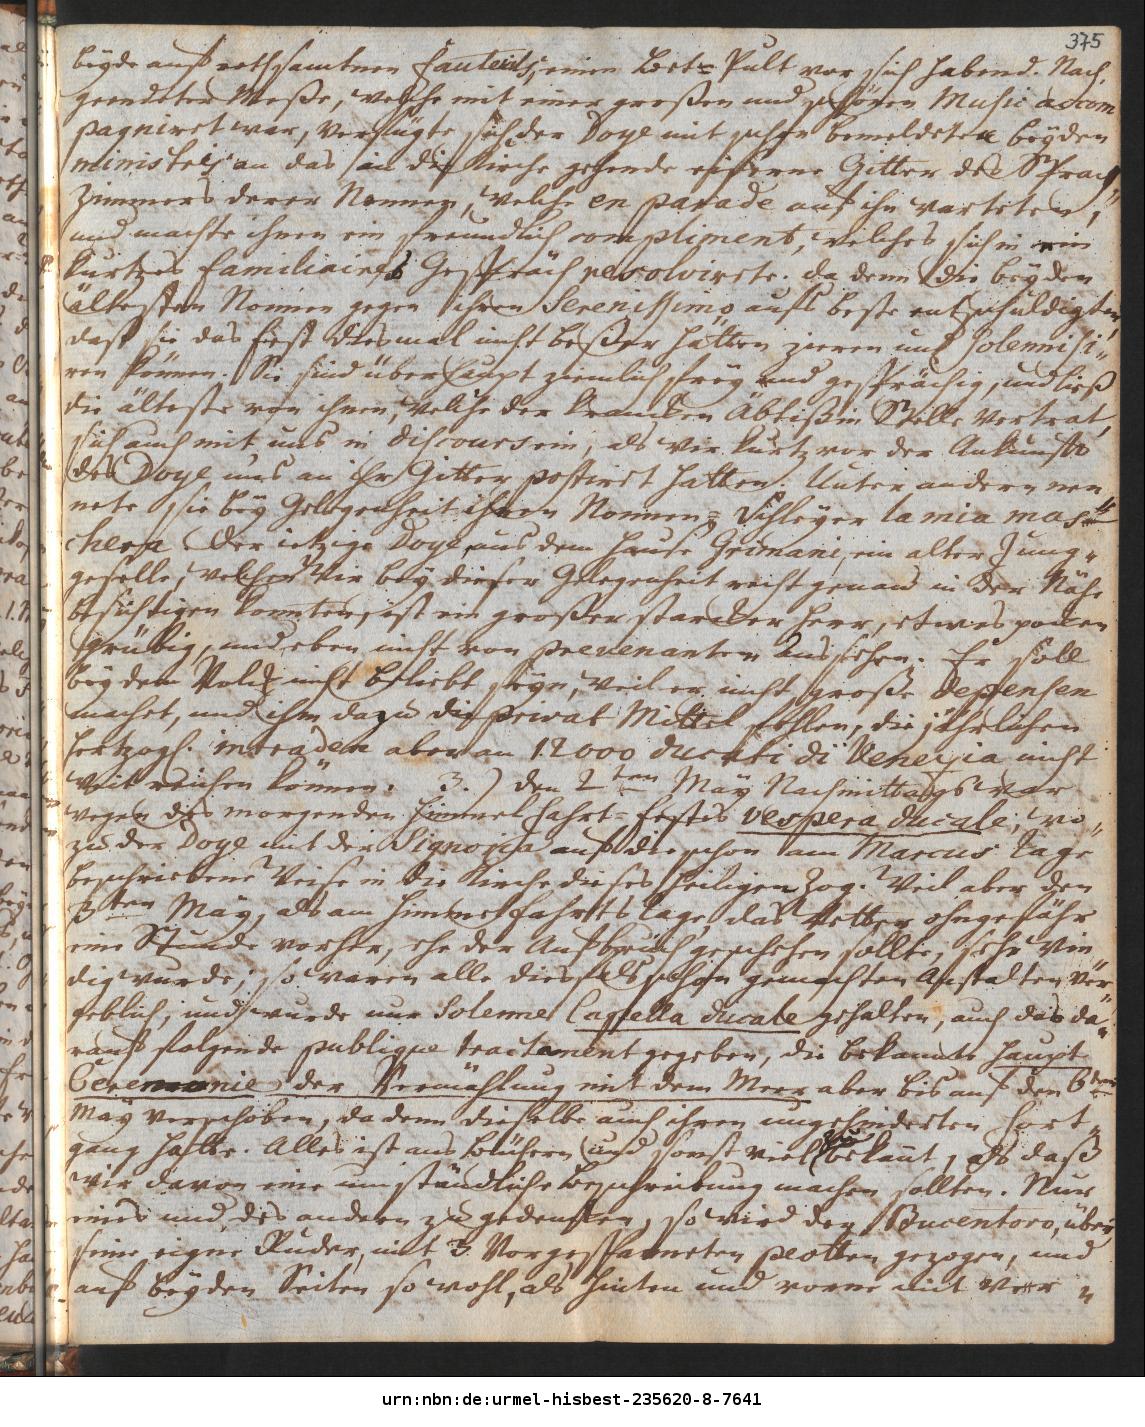 375
beyde auf rothsamtnen Fauteuils, einen Bet= Pult vor sich habend. Nach
geendeter Meße, welche mit einer großen und schönen Music accom
pagniret war, verfügte sich der Doge mit schon bemeldeten beyden
ministris an das in die Kirche gehende eiserne Gitter des Sprach
Zimmers derer Nonnen, welche en parade auf ihn warteten,
und machte ihnen ein freundlich compliment, welches sich in ein
kurtzes familiaires Gespräch resolvirete. da denn die beyden
ältesten Nonnen gegen ihren Serenissimo aufs beste entschuldigten,
daß sie das Fest diesmal nicht beßer hätten zieren und solennisi„
ren können. Sie sind überhaupt ziemlich frey und gesprächig, und ließ
die älteste von ihnen, welche der krancken Äbtißin Stelle vertrat,
sich auch mit uns in discours ein, als wir kurtz vor der Ankunft
des Doge uns an ihr Gitter postiret hatten. Unter andern nen
nete sie bey Gelegenheit ihren Nonnen= Schleyer la mia mas„
chera. Der ietzige Doge, aus dem Hause Grimani, ein alter Jung„
geselle, welchen wir bey dieser Gelegenheit recht genau in der Nähe
besichtigen konnten, ist ein großer starcker Herr, etwas pocken
grübig, und eben nicht von prevenanten Aussehen. Er soll
bey dem Volck nicht beliebt seyn, weil er nicht große depensen
machet, und ihm dazu die privat Mittel fehlen, die jährlichen
hertzogl. intraden aber an 12000 ducati di Venezia nicht
weit reichen können. 3.) den 2ten May Nachmittags war
wegen des morgenden Himmelfahrt= Festes vespera ducale, wo„
zu der Doge mit der Signoria auf die schon am Marcus Tage
beschriebene Weise in die Kirche dieses Heiligen zog. Weil aber den
3ten May, als am Himmelfahrts Tage, das Wetter ohngefähr
eine Stunde vorher, ehe der Aufbruch geschehen sollte, sehr win
dig wurde; so waren alle diesfals schon gemachten Anstalten ver„
geblich, und wurde nur solenne Capella ducale gehalten, auch das da„
rauf folgende publique tractament gegeben, die bekannte Haupt
Ceremonie der Vermählung mit dem Meer aber bis auf den 6ten
May verschoben, da denn dieselbe auch ihren ungehinderten Fort„
gang hatte. Alles ist aus Büchern und sonst viel zu bekant, als daß
wir davon eine umständliche Beschreibung machen sollten. Nur
eines und des andern zu gedencken, so wird der Bucentoro, über
seine eigne Ruder, mit 3 Vorgespanneten peotten gezogen, und
auf beyden Seiten so wohl, als hinten und vorne mit ver„
urn:nbn:de:urmel-hisbest-235620-8-7641